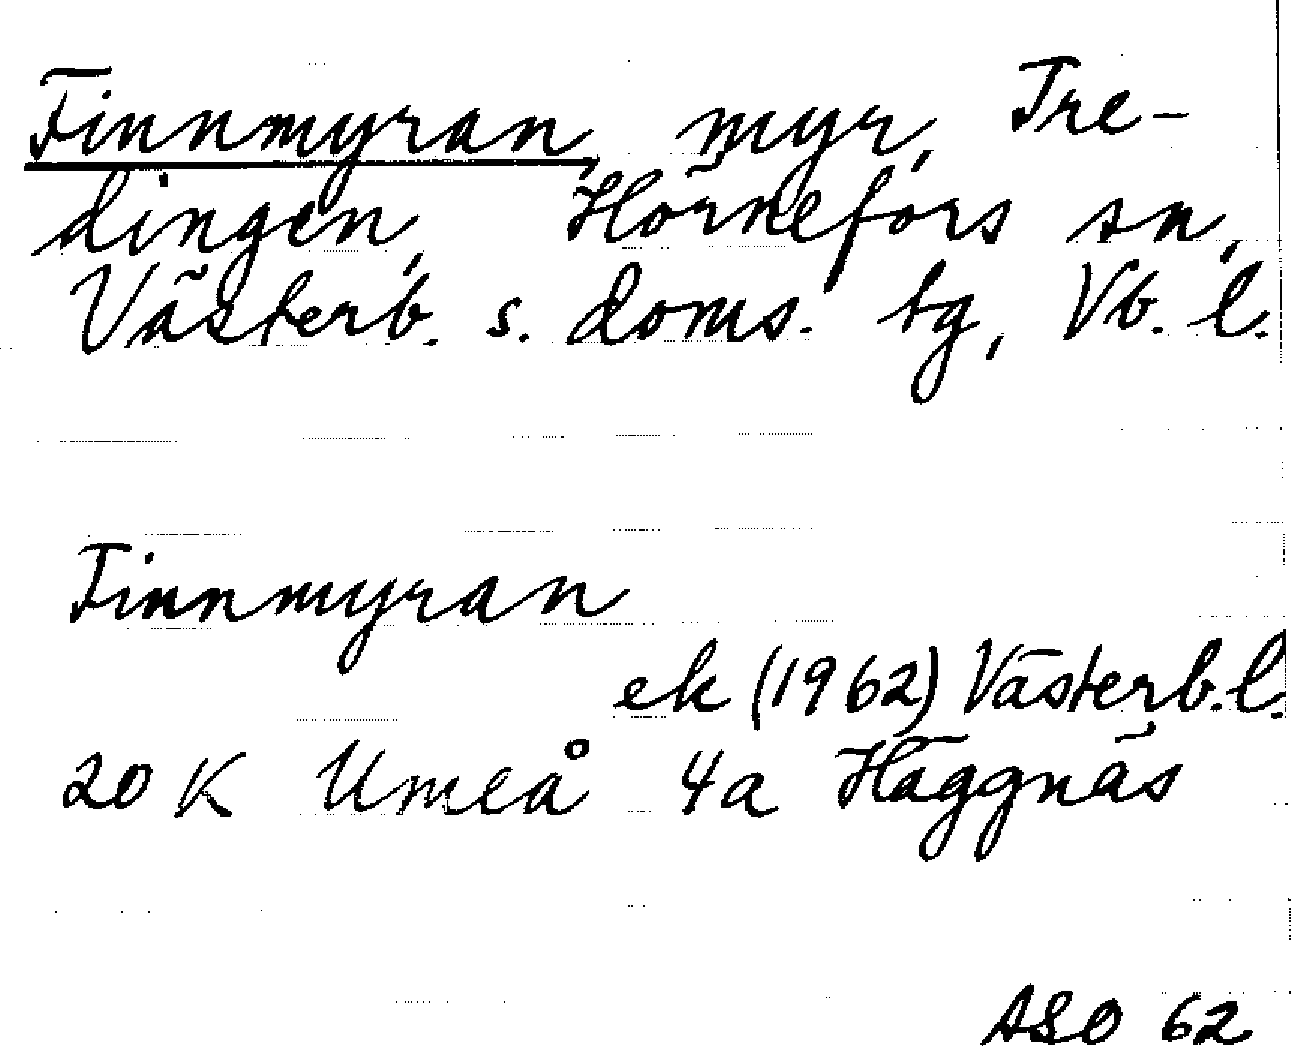 Finnmyran, myr, Tre-
dingen, Hörnefors sn,
Västerb. s. doms. tg, Vb. l.
Finnmyran
ek (1962) Västerb. l.
20 K Umeå 4a Häggnäs
ASO 62